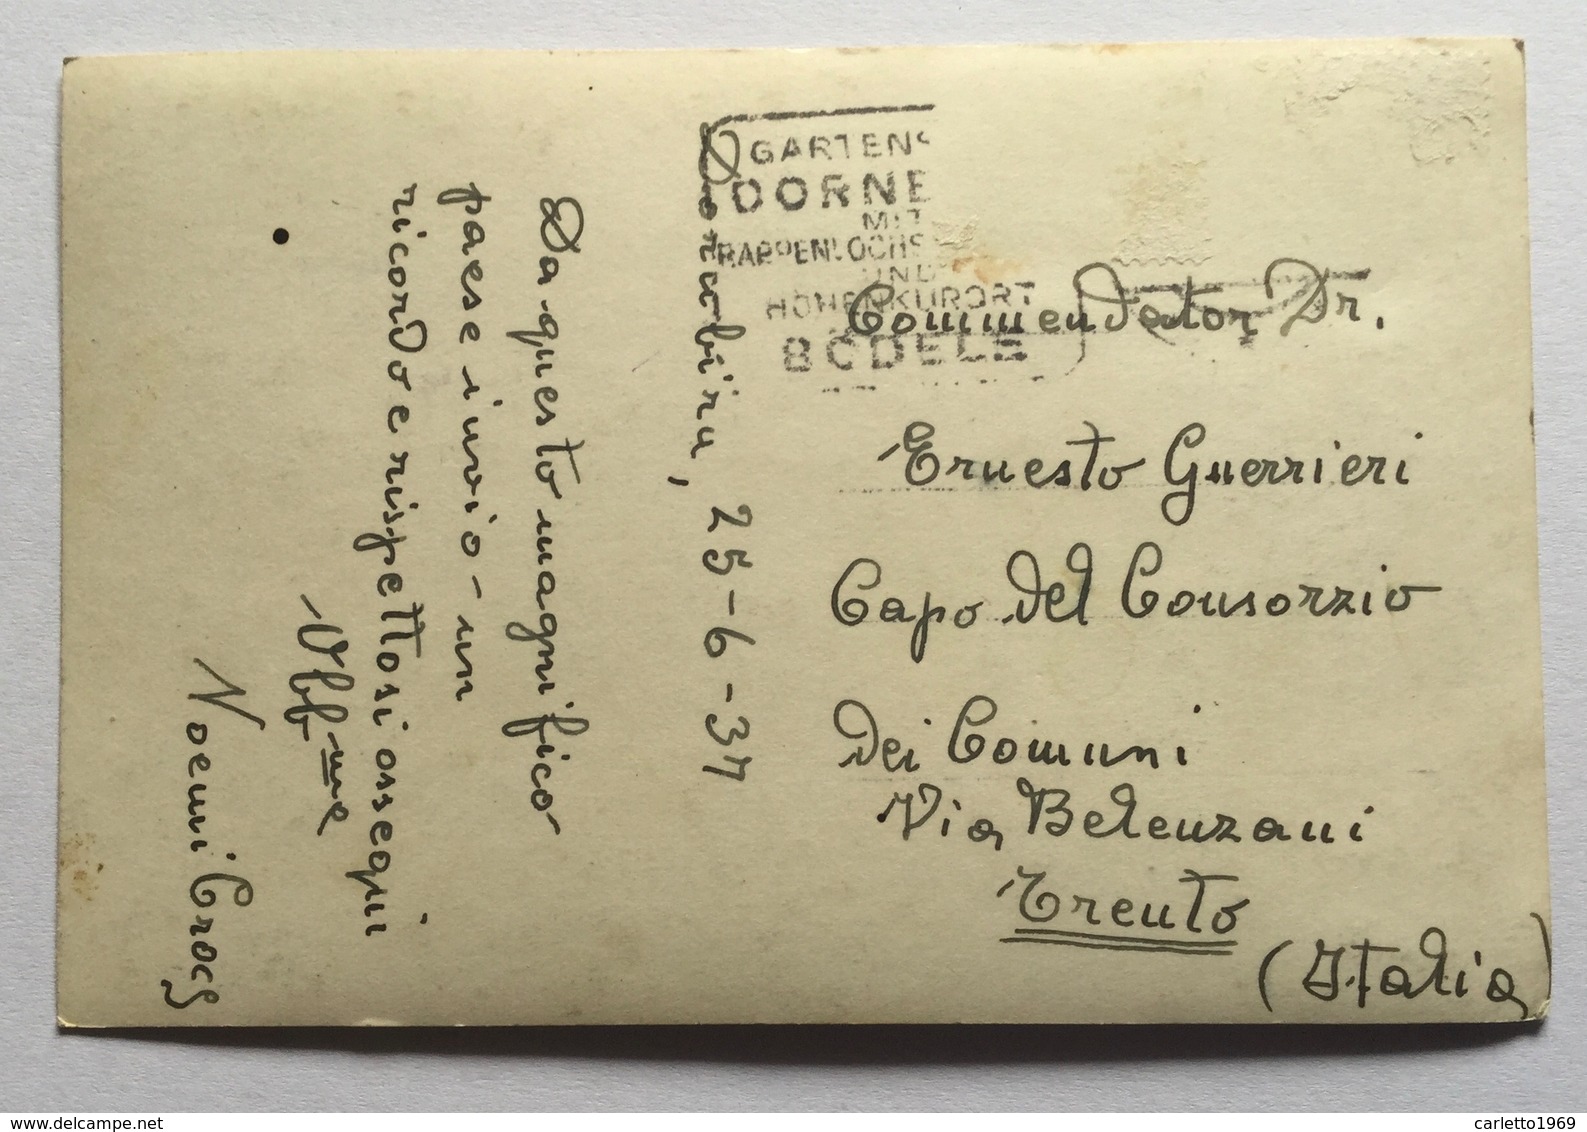 Dornbirn, 25-6-37
Da questo magnifico
paese invio un
ricordo e rispettosi ossequi
Obb-me
Noemi
GARTENS
DORNB
MIT
RAPPENLOCHS
UND
HÖHENKURORT
BÖDELE
Commendator Dr.
Ernesto Guerrieri
Capo del Consorzio
dei Comuni
Via Belenzani
Trento
(Italia)
www.delcampe.net
carletto1969